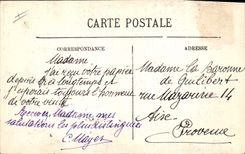 CARTE POSTALE
CORRESPONDANCE
ADRESSE
Madame,
J'ai reçu votre papier
depuis très longtemps et
j'espérais toujours l'honneur
de votre visite
Recevez, Madame, mes
salutations les plus distinguées
E. Mayer
Madame la Baronne
de Guilibert
rue Mazarine 14
Aix
Provence